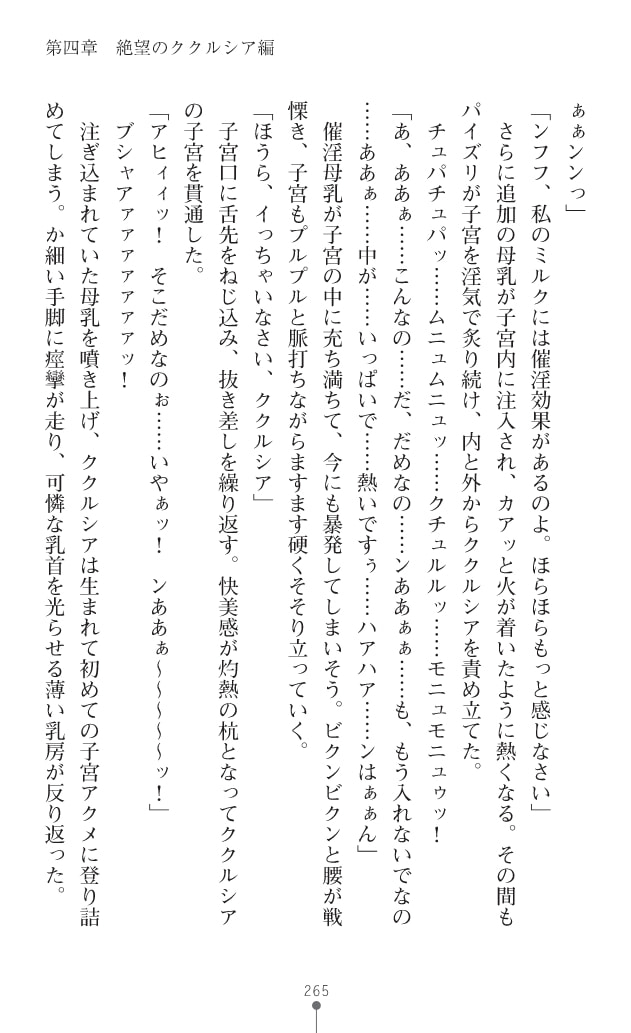 第四章　絶望のククルシア編
ぁぁンンっ」
「ンフフ、私のミルクには催淫効果があるのよ。ほらほらもっと感じなさい」
さらに追加の母乳が子宮内に注入され、カアッと火が着いたように熱くなる。その間も
パイズリが子宮を淫気で炙り続け、内と外からククルシアを責め立てた。
チュパチュパッ……ムニュムニュッ……クチュルルッ……モニュモニュゥッ！
「あ、ああぁ……こんなの……だ、だめなの……ンああぁぁ……も、もう入れないでなの
……ああぁ……中が……いっぱいで……熱いですぅ……ハアハア……ンはぁぁん」
催淫母乳が子宮の中に充ち満ちて、今にも暴発してしまいそう。ビクンビクンと腰が戦
慄き、子宮もプルプルと脈打ちながらますます硬くそそり立っていく。
「ほうら、イっちゃいなさい、ククルシア」
子宮口に舌先をねじ込み、抜き差しを繰り返す。快美感が灼熱の杭となってククルシア
の子宮を貫通した。
「アヒィィッ！　そこだめなのぉ……いやぁッ！　ンああぁ～～～～～ッ！」
ブシャアァァァァァァァッ！
注ぎ込まれていた母乳を噴き上げ、ククルシアは生まれて初めての子宮アクメに登り詰
めてしまう。か細い手脚に痙攣が走り、可憐な乳首を光らせる薄い乳房が反り返った。
265